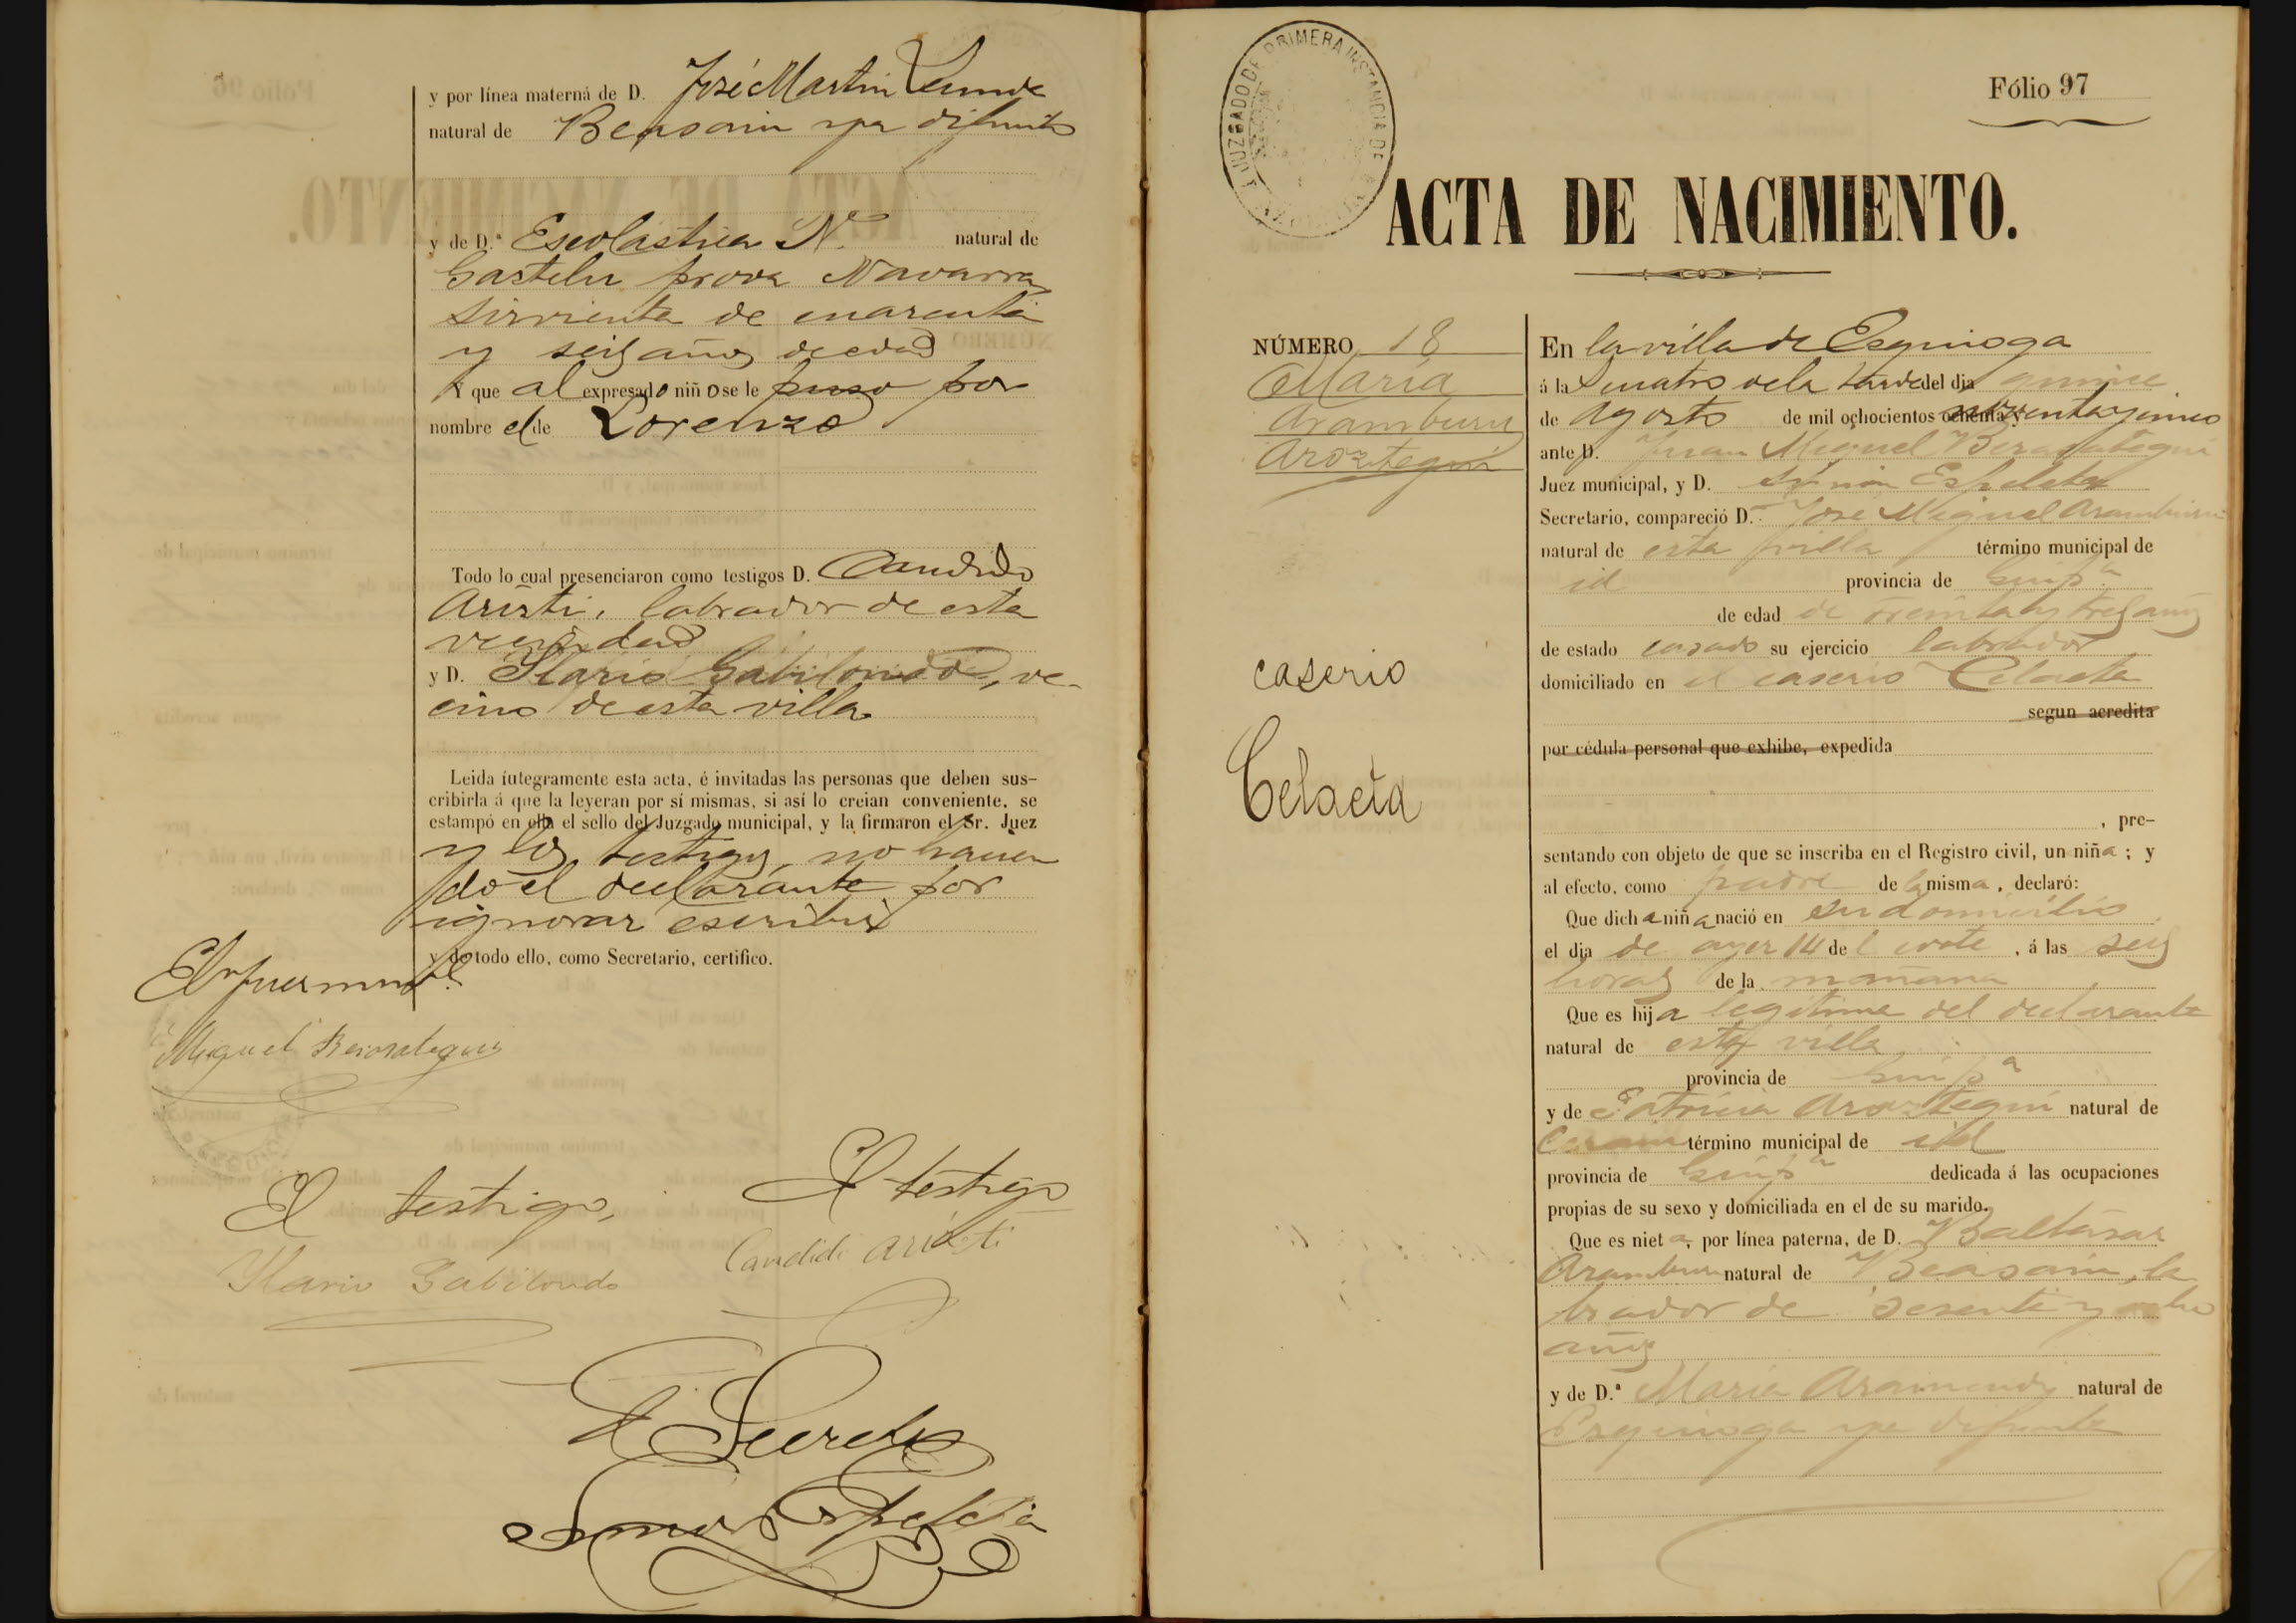 y por línea materna de D. José Martin
natural de Beasain ya difunto
y de D.ª Escolastica N. natural de
Gastelu prova Navarra
sirvienta de cuarenta
y seis años de edad
Y que al expresado niño se le puso por
nombre el de Lorenzo
Todo lo cual presenciaron como testigos D. Candido
Aristi, labrador de esta
vecindad
y D. Ilario Gabilondo, ve-
cino de esta villa
Leida íntegramente esta acta, é invitadas las personas que deben sus-
cribirla á que la leyeran por sí mismas, si así lo creian conveniente, se
estampó en ella el sello del Juzgado municipal, y la firmaron el Sr. Juez
y los testigos, no hacien
do el declarante por
ignorar escribir
y de todo ello, como Secretario, certifico.
El Juez munpl.
Miguel Berasategui
El testigo,
Ilario Gabilondo
El testigo
Candido Aristi
El Secreto
Simon Espeleta
JUZGADO DE PRIMERA INSTANCIA DE
Fólio 97
ACTA DE NACIMIENTO.
NÚMERO 18
Maria
Aramburu
Aroztegui
caserio
Celaeta
En la villa de Esquioga
á las cuatro de la tarde del dia quince
de Agosto de mil ochocientos ochenta y noventa y cinco
ante D. Juan Miguel Berasategui
Juez municipal, y D. Simon Espeleta
Secretario, compareció D. José Miguel Aramburu
natural de esta villa término municipal de
id provincia de Guipª
de edad de treinta y tres años
de estado casado su ejercicio labrador
domiciliado en el caserio Celaeta
segun acredita
por cédula personal que exhibe, expedida
, pre-
sentando con objeto de que se inscriba en el Registro civil, un niña ; y
al efecto, como padre de la misma, declaró:
Que dicha niña nació en su domicilio
el dia de ayer 14 del cote , á las seis
horas de la mañana
Que es hija legitima del declarante
natural de esta villa
provincia de Guipª
y de Patricia Aroztegui natural de
término municipal de id
provincia de Guipª dedicada á las ocupaciones
propias de su sexo y domiciliada en el de su marido.
Que es nieta, por línea paterna, de D. Baltasar
Aramburu natural de Beasain, la
brador de sesenta y ocho
años
y de D.ª Maria Aramendi natural de
Esquioga ya difunta